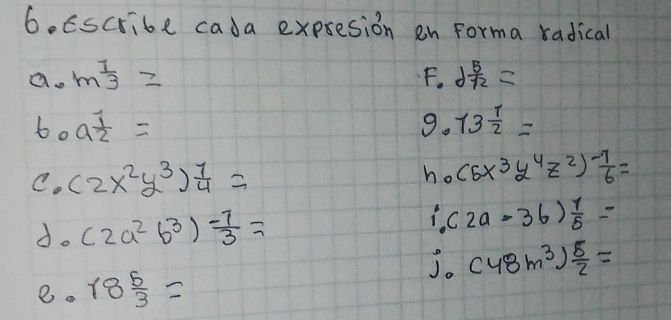 6. Escribe cada expresión en Forma radical
a. m^1/3 =
b. a^1/2 =
c. (2x²y³)^1/4 =
d. (2a²b³)^-1/3 =
e. 18^5/3 =
F. d^5/12 =
g. 13^1/2 =
h. (5x³y⁴z²)^-1/6 =
i. (2a - 3b)^1/5 =
j. (48m³)^5/2 =